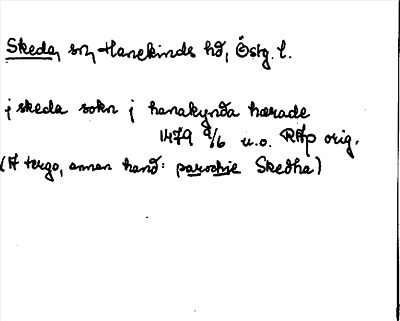 Skeda, sn, Hanekinds hd, Östg. l.
j skeda sokn j hanakynda hærade
1479 9/6 u.o. RAp orig.
(A tergo, annan hand: parochie Skedha)